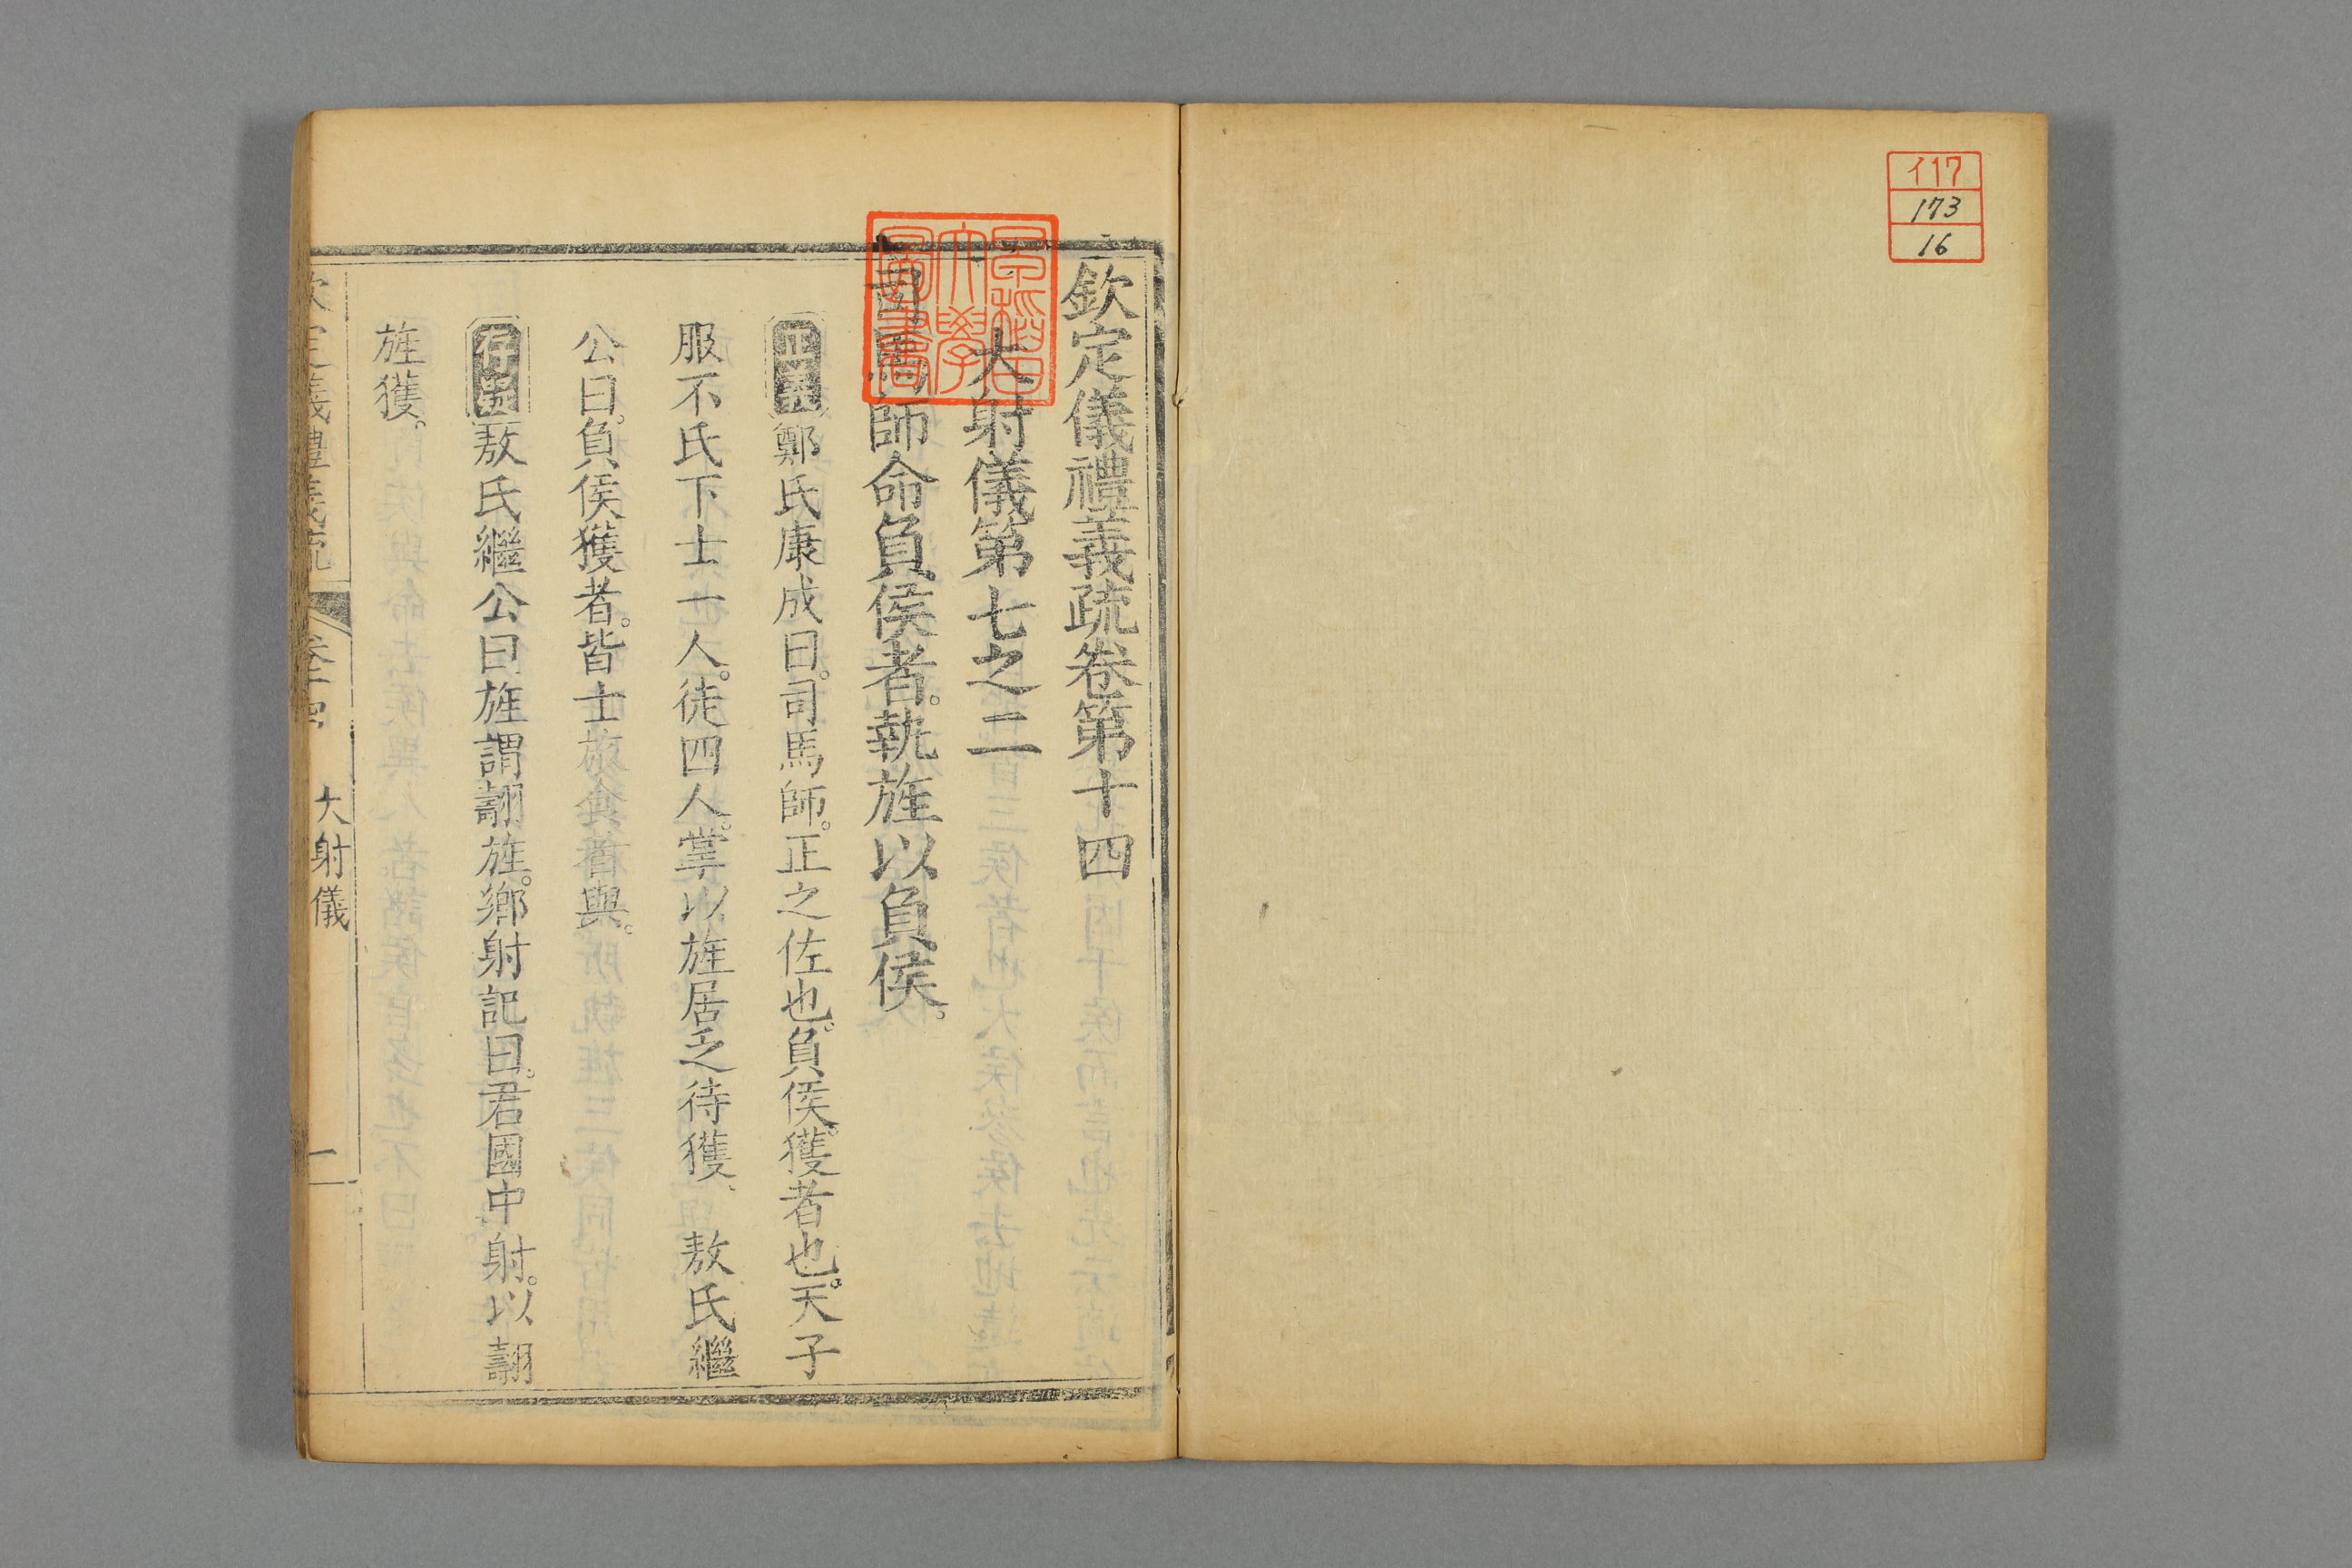 イ17
173
16
欽定儀禮義疏卷第十四
大射儀第七之二
司馬師命負侯者。執旌以負侯。
正義鄭氏康成曰。司馬師。正之佐也。負侯。獲者也。天子
服不氏下士一人。徒四人。掌以旌居乏待獲、敖氏繼
公曰。負侯獲者。皆士旅食者與。
存疑敖氏繼公曰旌謂翿旌。鄉射記曰。君國中射。以翿
旌獲。
欽定儀禮義疏 卷十四 大射儀 一
早稻田大學圖書